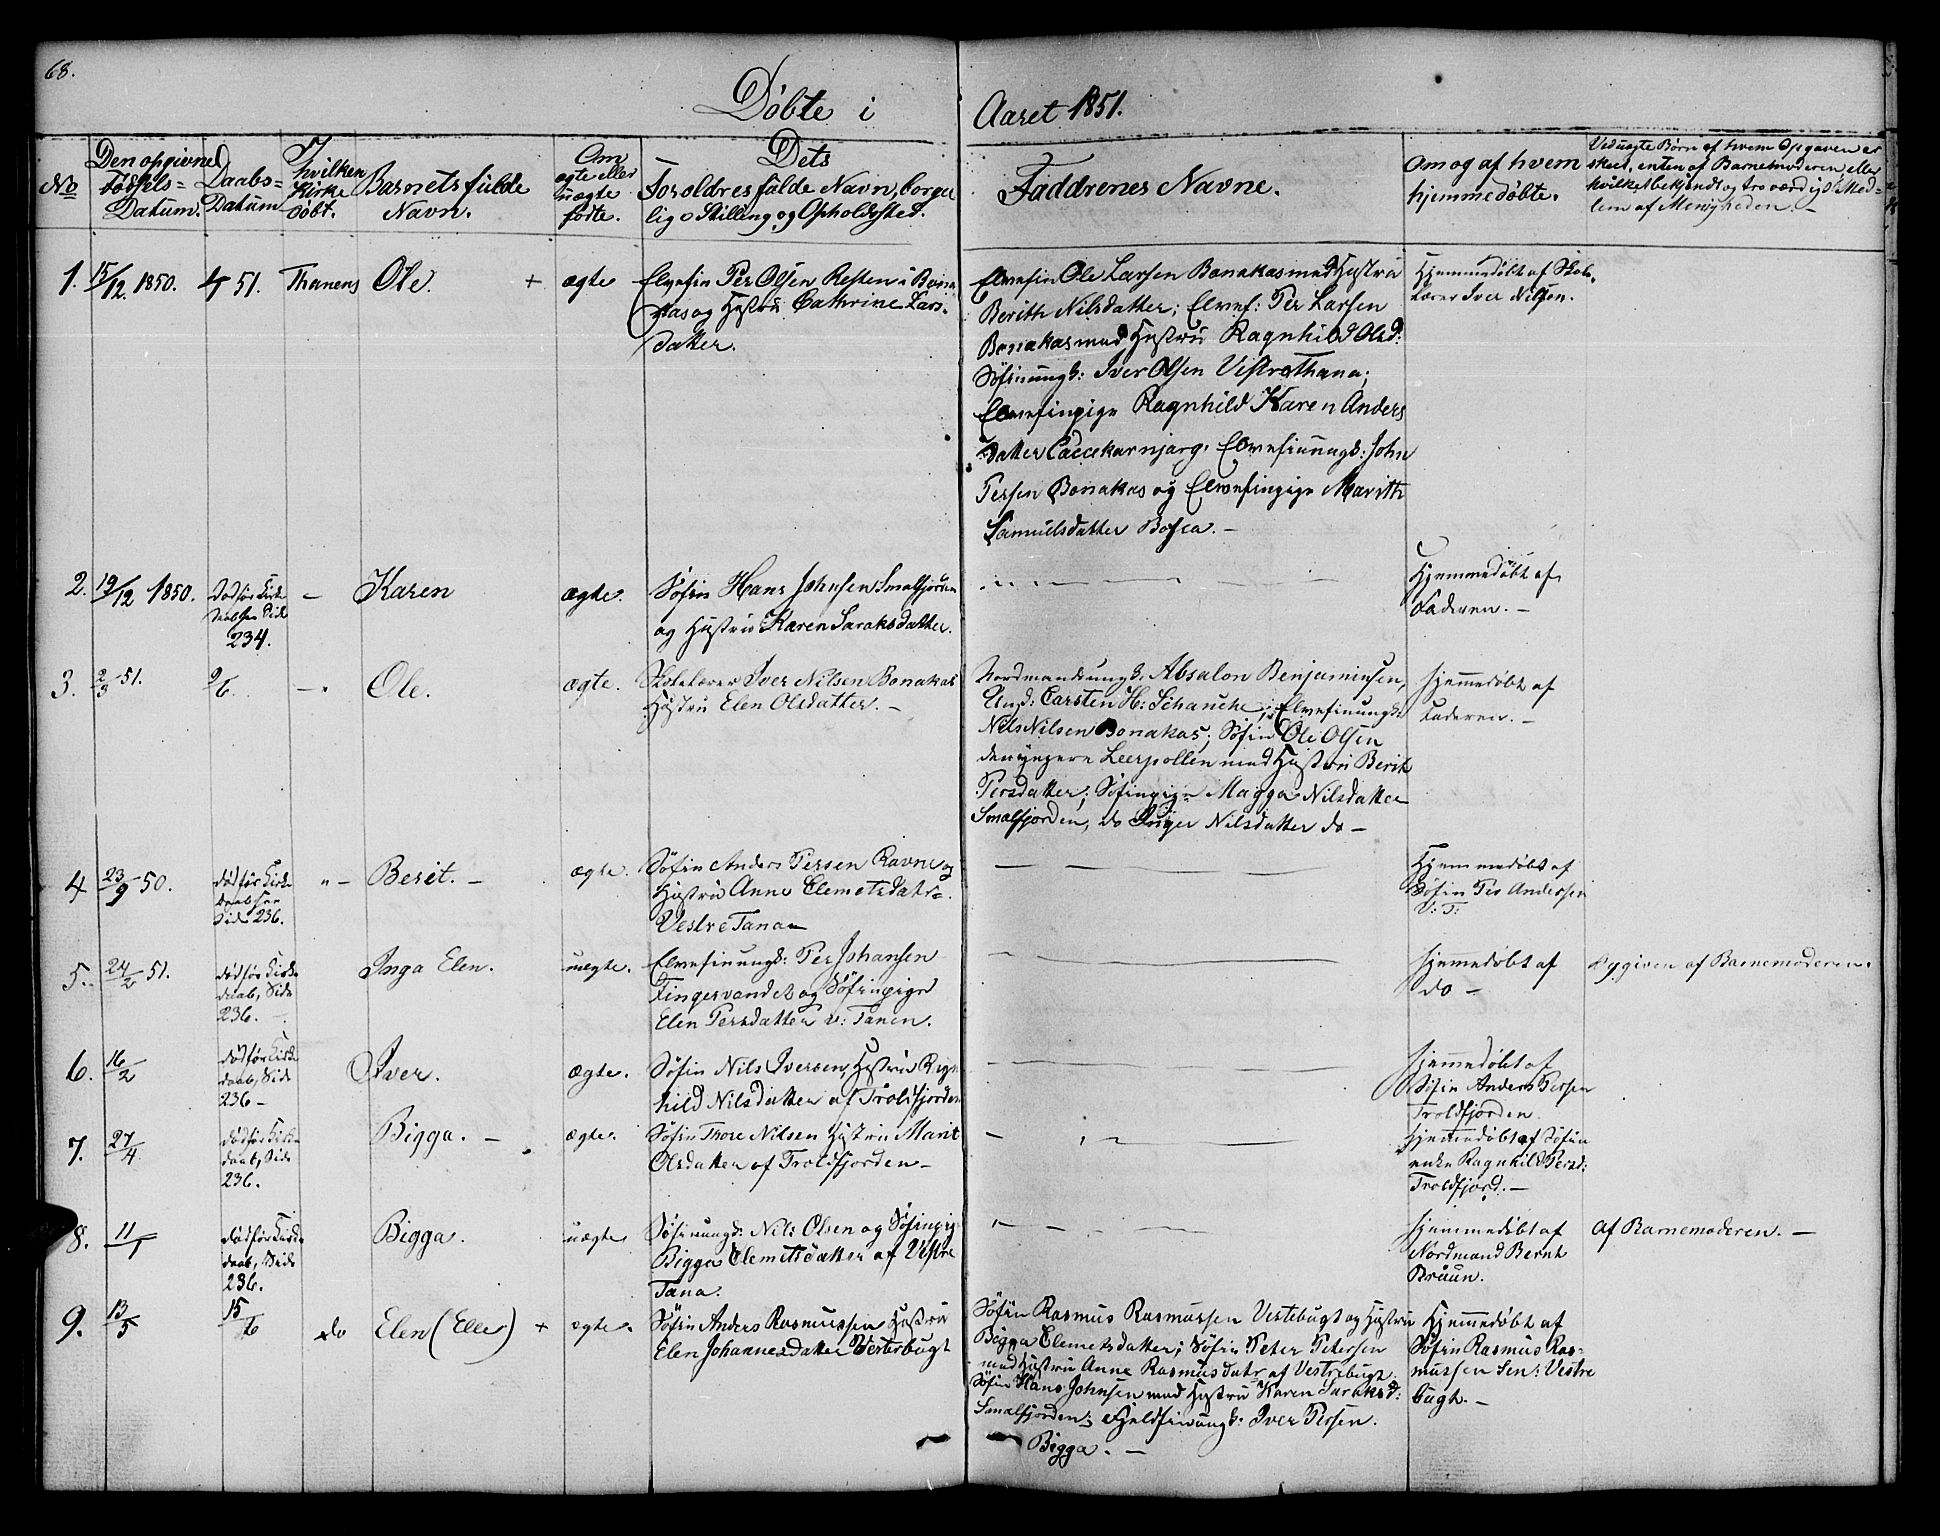 68.
Døbte i Aaret 1851.
No
Den opgivne Fødsels= Datum.
Daabs= Datum
I hvilken Kirke døbt.
Barnets fulde Navn.
Om ægte eller uægte fødte.
Dets Foroldres fulde Navn, borger lige Stilling og Opholdssted.
Faddrenes Navne.
Om og af hvem hjemmedøbte.
Ved uægte Børn af hvem Opgaven er skeet, enten af Barnemoderen eller hvilket bekjendt og troværdigt Med= lem af Menigheden. –
1. 15/12 1850. 51. Thanens Ole. + ægte
Elvefin Per Olsen Resten i Bona
kas og Hustru Cathrine Lars
datter.
Elvefin Ole Larsen Bonakas med Hustru
Berith Nilsdatter; Elvef: Per Larsen
Bonakas med Hustru Ragnhild Olsd:
Søfinungk: Iver Olsen Vestrethana;
Elvefinpige Ragnhild Karen Anders
datter Elvefinungk: John
Persen Bonakas og Elvefinpige Marith
Samuelsdatter –
Hjemmedøbt af Skole
lærer Iver Nilsen.
2. 19/12 1850. Død før Kirke
daaben Side
234. – Karen ægte.
Søfin Hans Johnsen Smalfjorden
og Hustru Karen Saraksdatter.
Hjemmedøbt af
Faderen. –
3. 2/3 51. 9/6. – Ole. ægte.
Skolelærer Iver Nilsen Bonakas
Hustru Elen Olsdatter. –
Nordmandsungk: Absalon Benjaminsen,
Ungk: Carsten H: Schanche; Elvefinungk:
Nils Nilsen Bonakas; Søfin Ole Olsen
den yngere Leerpollen med Hustru Berit
Persdatter; Søfinpige Magga Nilsdatter
Smalfjorden, do Inger Nilsdatter do –
hjemmedøbt af
Faderen. –
4 23/9 50. død før Kirke
daaben
Side 236. " – Berit. – ægte.
Søfin Anders Persen Ravne og
Hustru Anne Clemetsdatr.
Vestre Tana
Hjemmedøbt af
Søfin Per Andersen
V: T:
5. 24/2 51. død før Kirke
daab, Side
236. – Inga Elen. uægte.
Elvefinungk: Per Johansen
Fingervandet og Søfinpige
Elen Persdatter v: Tanen.
hjemmedøbt af
do –
Opgiven af Barnemoderen.
6. 16/2 død før Kirke
daab, Side
236 – Iver. ægte.
Søfin Nils Iversen, Hustru Ragn
hild Nilsdatter af Troldfjorden
hjemmedøbt af
Søfin Anders Persen
Troldfjorden.
7. 27/4 død før Kirke
daab, Side
236. Bigga. – ægte.
Søfin Thore Nilsen Hustru Marit
Olsdatter af Troldfjorden –
hjemmedøbt af Søfin
enke Ragnhild Persd:
Troldfjord. –
8. 11/1 død før Kirke
daab, Side
236. Bigga. uægte.
Søfinungk: Nils Olsen og Søfinpig
Bigga Clemetsdatter af Vestre
Tana.
hjemmedøbt af
Nordmand Bernt
Bruun.
Af Barnemoderen. –
9. 13/5 15/6 do Elen (Elle) + ægte.
Søfin Anders Rasmussen Hustru
Elen Johannesdatter Vesterbugt
Søfin Rasmus Rasmussen Vestebugt og Hustru
Bigga Clemetsdatter; Søfin Peter Petersen
med Hustru Anne Rasmusdatr af Vestrebugt.
Søfin Hans Johnsen med Hustru Karen Saraksd:
Smalfjorden; Fjeldfinungk: Iver Persen.
Bigga. –
Hjemmedøbt af
Søfin Rasmus Ras=
mussen Sen: Vestre
bugt. –